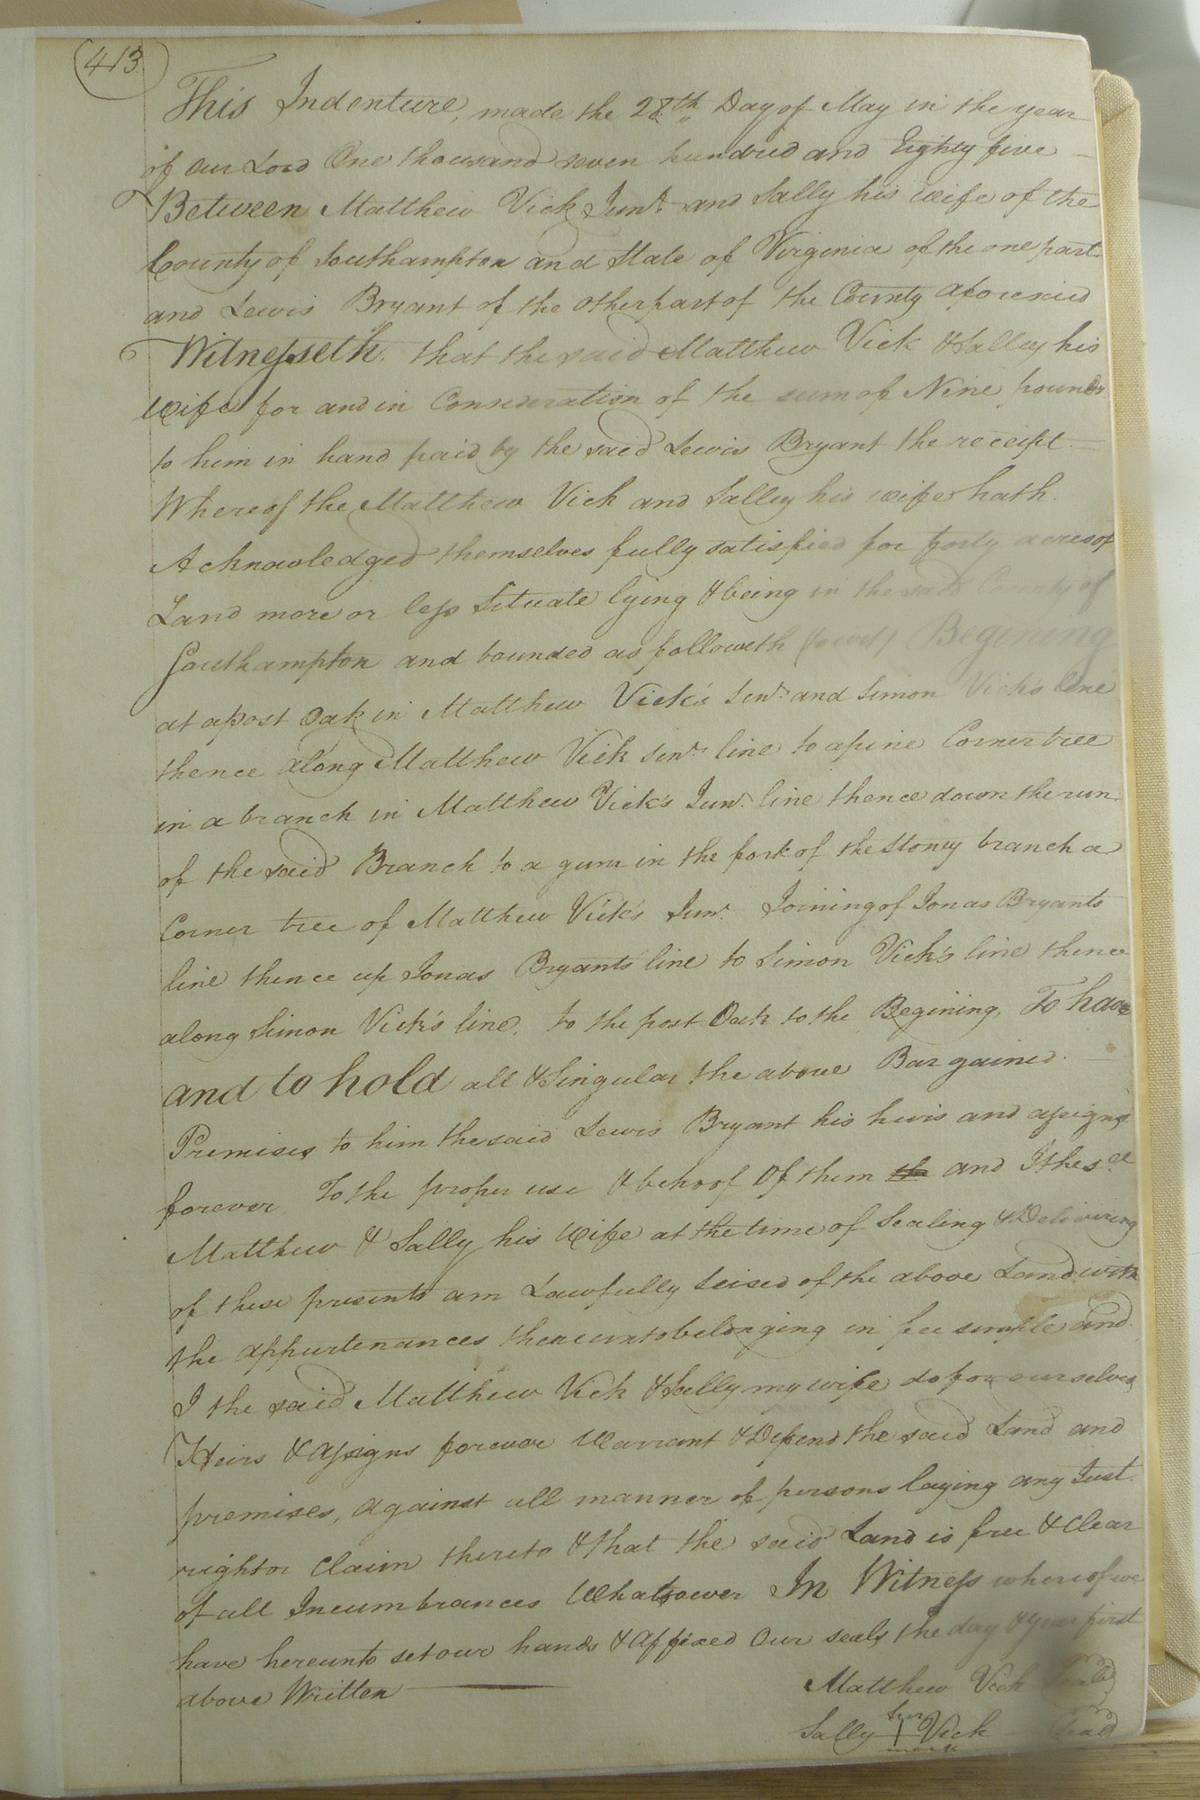 413
This Indenture, made the 28th Day of May in the year
of our Lord One thousand seven hundred and Eighty five
Between Matthew Vick Junr. and Sally his wife of the
County of Southampton and State of Virginia of the one part
and Lewis Bryant of the other part of the County aforesaid
Witnesseth. that the said Matthew Vick & Salley his
wife for and in Consideration of the sum of Nine pounds
to him in hand paid by the said Lewis Bryant the receipt
Whereof the Matthew Vick and Salley his wife hath.
Acknowledged themselves fully satisfied for forty acres of
Land more or less Situate lying & being in the said County of
Southampton and bounded as followeth (towit) Begining
at a post Oak in Matthew Vick's Senr. and Simon Vick's line
thence along Matthew Vick Senr. line to a pine Corner tree
in a branch in Matthew Vick's Junr. line thence down the run
of the said Branch to a gum in the fork of the Stony branch a
Corner tree of Matthew Vick's Junr. Joining of Jonas Bryants
line thence up Jonas Bryants line to Simon Vick's line thence
along Simon Vick's line, to the post Oak to the Begining, To have
and to hold all & Singular the above Bargained.
Premises to him the said Lewis Bryant his heirs and assigns
forever To the proper use & behoof Of them th and I the sd.
Matthew & Sally his Wife at the time of Sealing & Delivering
of these presents am Lawfully Seised of the above Land with
the appurtenances thereunto belonging in fee simple and
I the said Matthew Vick & Sally my wife do for ourselves
Heirs & assigns forever Warrant & Defend the said Land and
premises, against all manner of persons laying any Just
right or Claim thereto & that the said Land is free & Clear
of all Incumbrances Whatsoever In Witness whereof we
have hereunto set our hands & affixed Our seals the day & year first
above Written
Matthew Vick Seal
her
Sally Vick Seal
mark